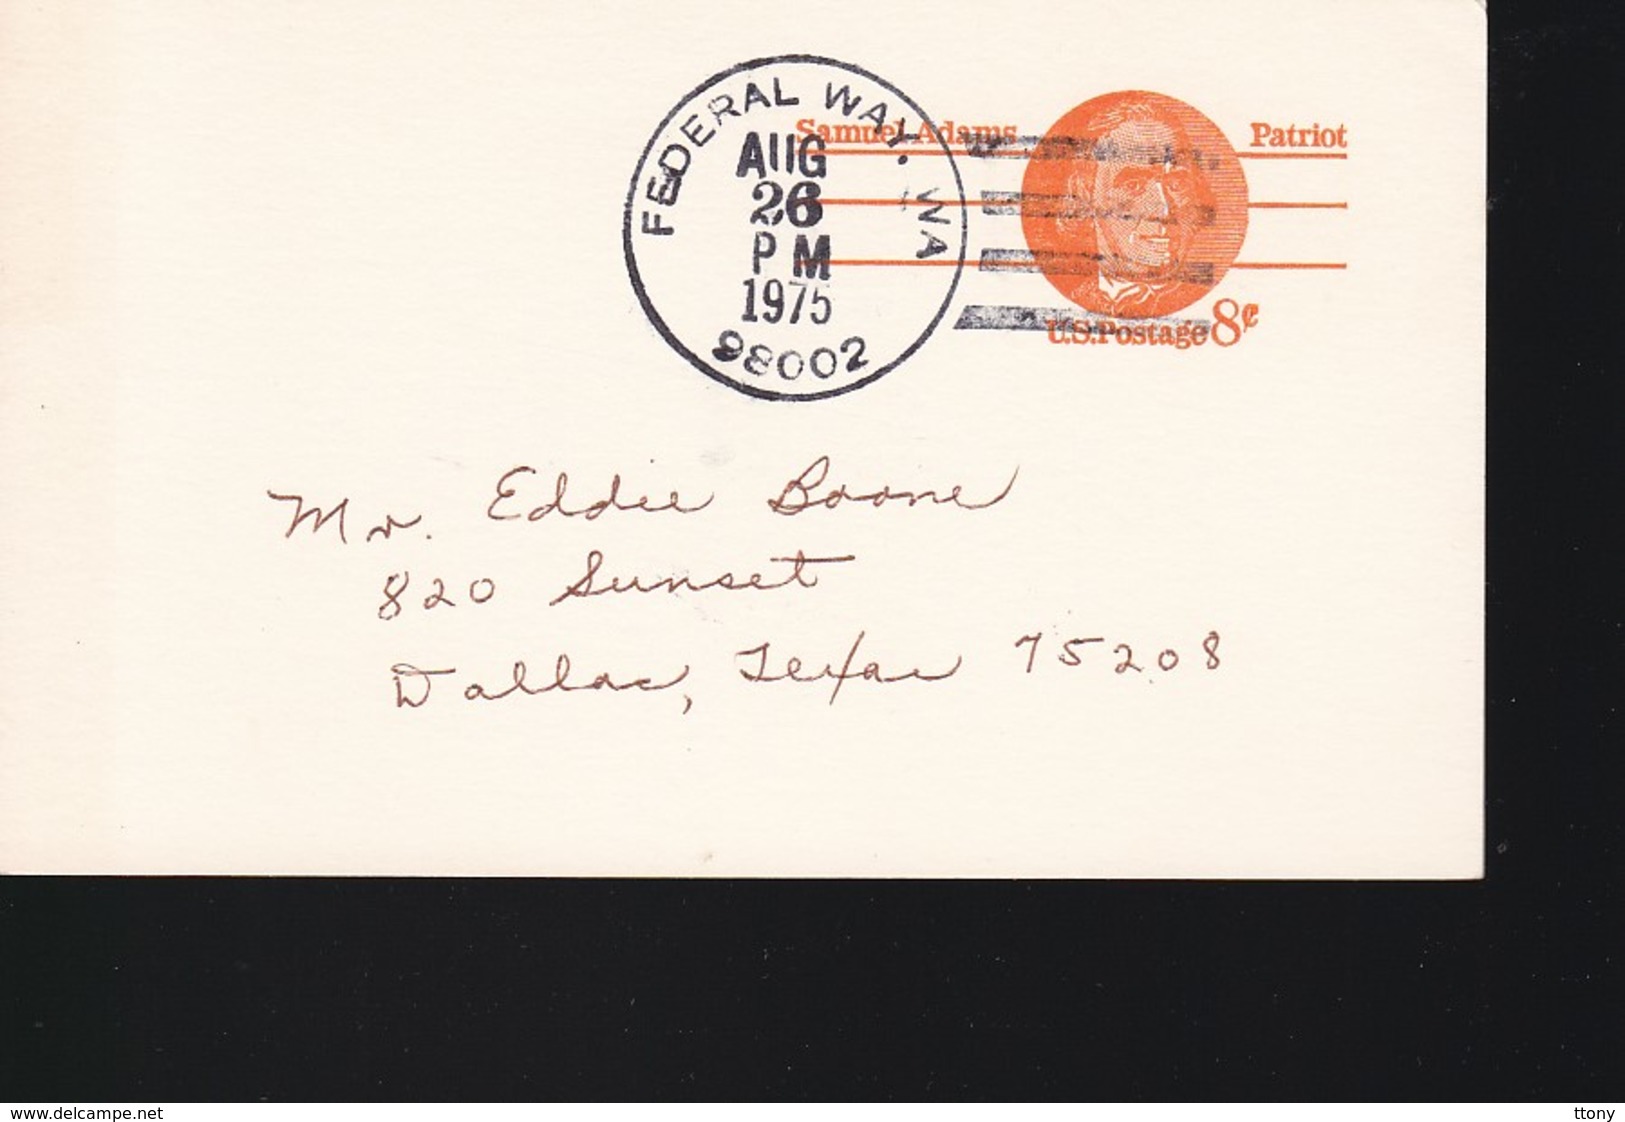 FEDERAL WAY, WA
AUG
26
PM
1975
98002
Samuel Adams Patriot
U.S. Postage 8¢
Mr. Eddie Boone
820 Sunset
Dallas, Texas 75208
www.delcampe.net
ttony